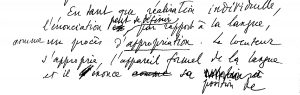 En tant que réalisation individuelle,
l'énonciation peut se définir par rapport à la langue,
comme un procès d'appropriation. Le locuteur
s'approprie l'appareil formel de la langue
et il énonce sa position de